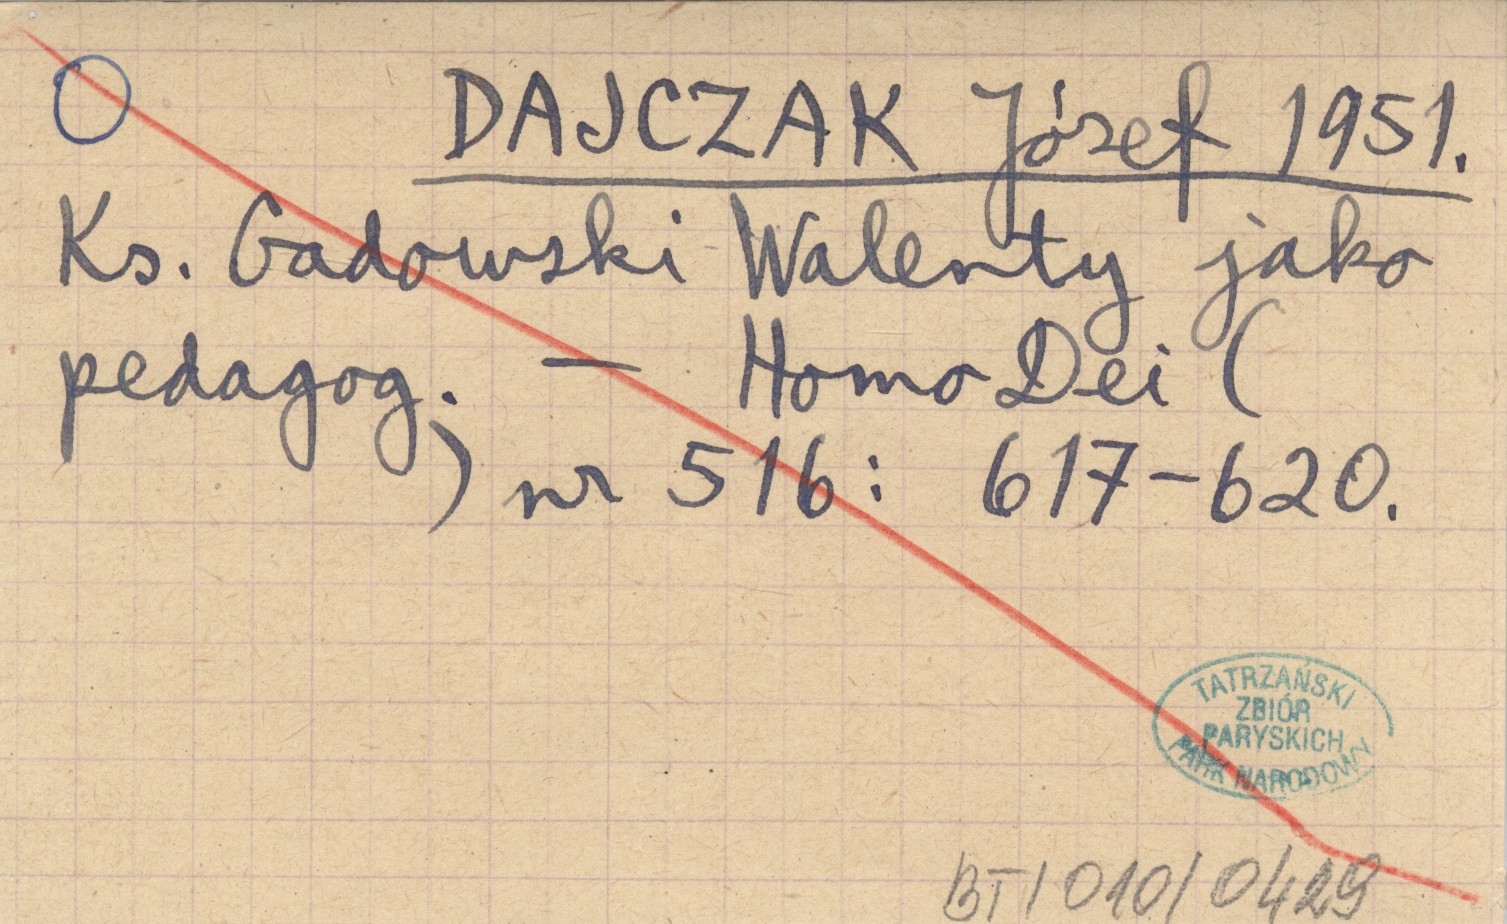 O DAJCZAK Józef 1951.
Ks. Gadowski Walenty jako
pedagog. — Homo Dei (
) nr 516: 617-620.
TATRZAŃSKI
ZBIÓR
PARYSKICH
PARK NARODOWY
BT/010/0429